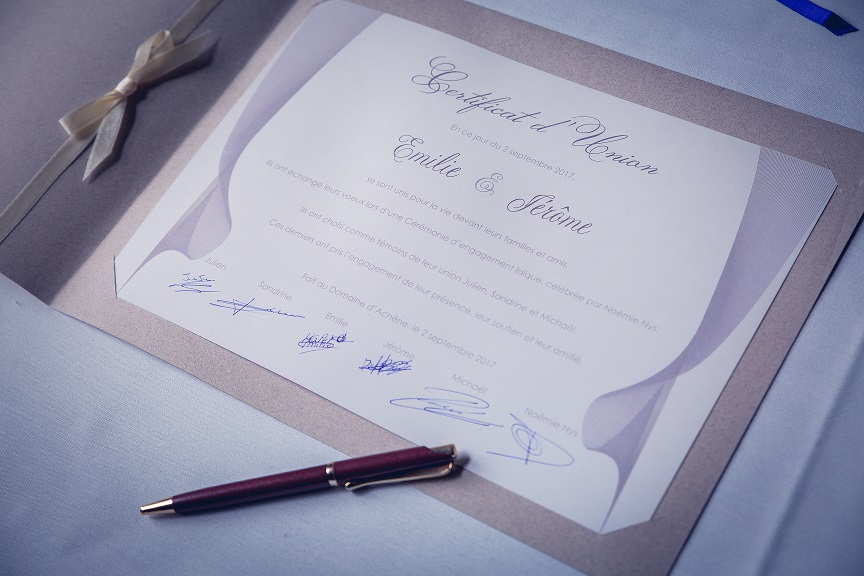 Certificat d'Union
En ce jour du 2 septembre 2017,
Emilie & Jérôme
se sont unis pour la vie devant leurs familles et amis.
Ils ont échangé leurs voeux lors d'une Cérémonie d'engagement laïque, célébrée par Noémie Nys.
Ils ont choisi comme témoins de leur union Julien, Sandrine et Michaël.
Ces derniers ont pris l'engagement de leur présence, leur soutien et leur amitié.
Fait au Domaine d'Achêne, le 2 septembre 2017
Julien
Sandrine
Emilie
Jérôme
Michaël
Noémie Nys